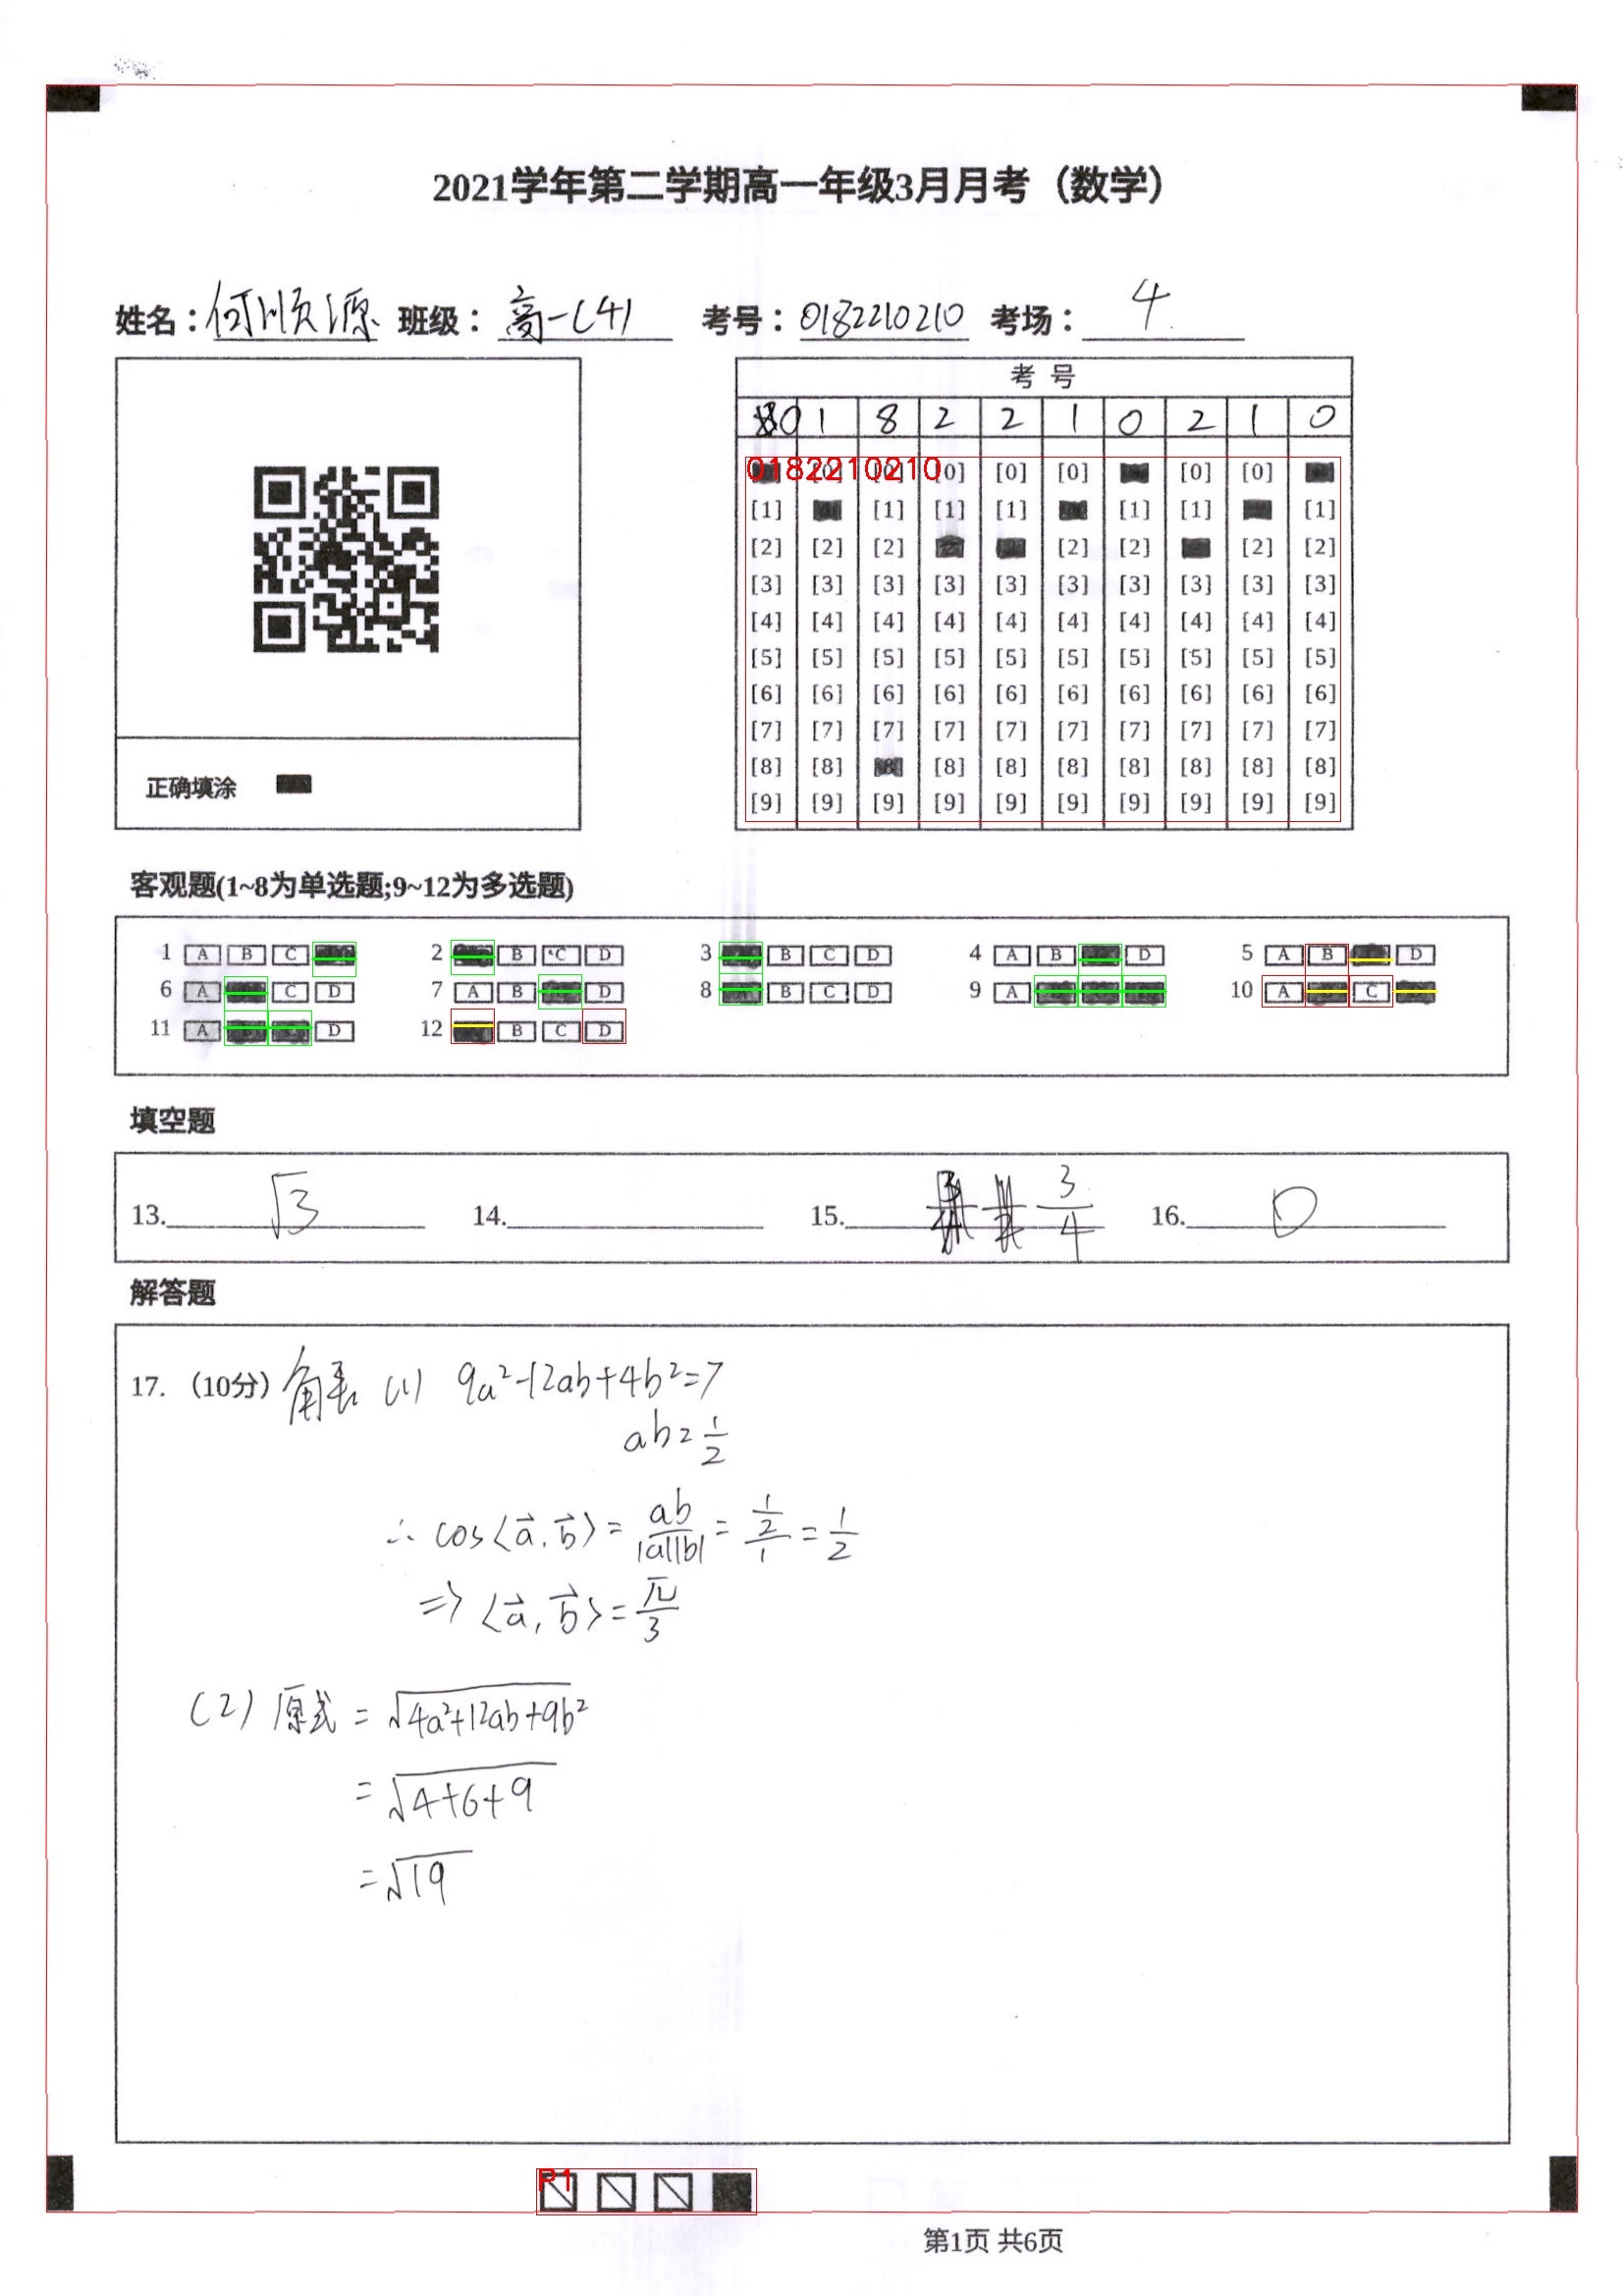 2021学年第二学期高一年级3月月考（数学）
姓名：何顺源 班级：高一(4) 考号：0182210210 考场：4
考 号
0 1 8 2 2 1 0 2 1 0
0182210210
[0] [0] [0] [0] [0] [0]
[1] [1] [1] [1] [1] [1] [1]
[2] [2] [2] [2] [2] [2] [2]
[3] [3] [3] [3] [3] [3] [3] [3] [3] [3]
[4] [4] [4] [4] [4] [4] [4] [4] [4] [4]
[5] [5] [5] [5] [5] [5] [5] [5] [5] [5]
[6] [6] [6] [6] [6] [6] [6] [6] [6] [6]
[7] [7] [7] [7] [7] [7] [7] [7] [7] [7]
[8] [8] [8] [8] [8] [8] [8] [8] [8] [8]
[9] [9] [9] [9] [9] [9] [9] [9] [9] [9]
正确填涂
客观题(1~8为单选题;9~12为多选题)
1 A B C 2 B C D 3 B C D 4 A B D 5 A B D
6 A C D 7 A B D 8 B C D 9 A 10 A C
11 A D 12 B C D
填空题
13. √3 14. 15. 3/4 16. 0
解答题
17.（10分）解 (1) 9a²-12ab+4b²=7
ab=1/2
∴ cos<a⃗,b⃗>=ab/|a||b|=(1/2)/1=1/2
⇒ <a⃗,b⃗>=π/3
(2) 原式=√(4a²+12ab+9b²)
=√(4+6+9)
=√19
P1
第1页 共6页